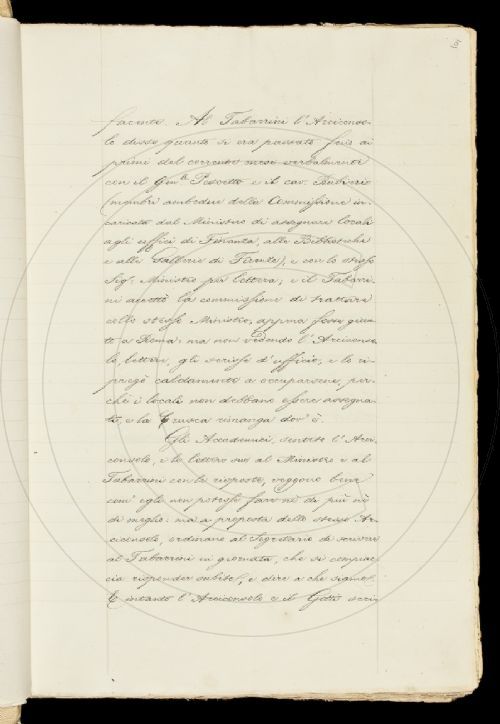 101
faccente. Al Tabarrini l'Arciconso-
lo disse quanto si era passato fra ai
primi del corrente mese verbalmente
con il Gm.ᵉ Peruzzi e il cav. Barbieri
(membri ambedue della Commissione in-
caricata dal Ministero di assegnare locali
agli uffici di Finanza, alle Biblioteche
e alle Gallerie di Firenze), e con lo stesso
Sig.ʳ Ministro per lettera; e il Tabarri-
ni accettò la commissione di trattare
collo stesso Ministro, appena fosse giun-
to a Roma: ma non vedendo l'Arciconso-
lo, lettere, gli scrisse d'ufficio, e lo ri-
pregò caldamente a occuparsene, per-
chè i locali non debbano essere assegna-
ti, e la Crusca rimanga dov'è.
Gli Accademici, sentito l'Arci-
consolo, e le lettere sue al Ministro e al
Tabarrini con le risposte, veggono bene
com'egli non potesse fare nè di più nè
di meglio: ma a proposta dello stesso Ar-
ciconsolo, ordinano al Segretario di scrivere
al Tabarrini in giornata, che si compiac-
cia rispondere subito, e dire a che siamo.
E intanto l'Arciconsolo e il Gotti scri-